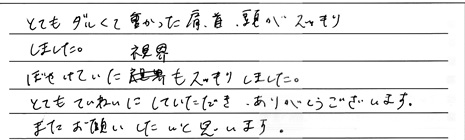 とてもダルくて重かった肩、首、頭がスッキリ
しました。
視界
ぼやけていたもスッキリしました。
とてもていねいにしていただき、ありがとうございます。
またお願いしたいと思います。